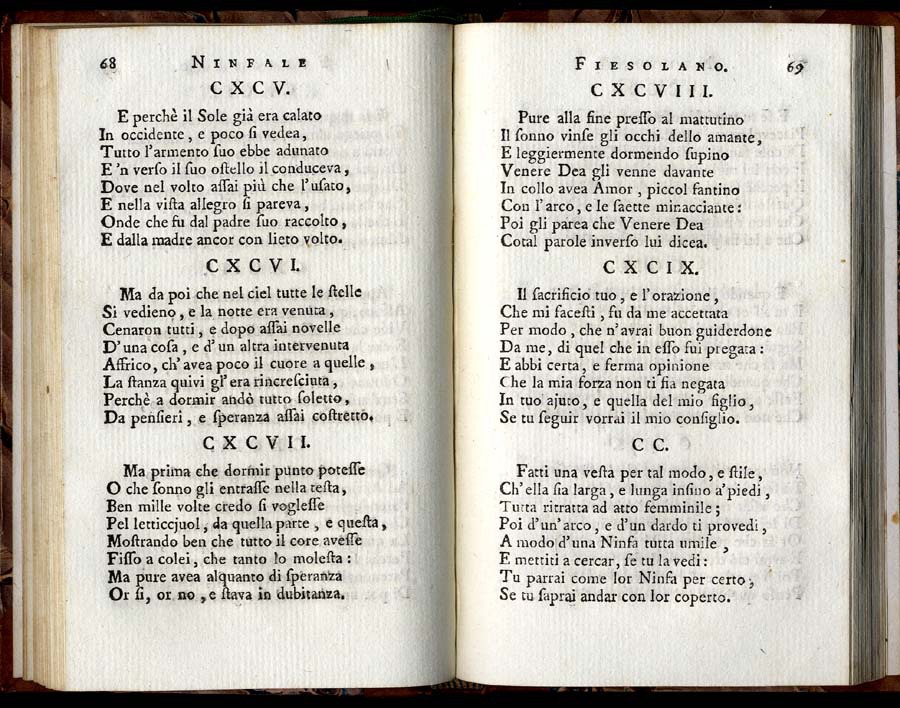 68 NINFALE
CXCV.
E perchè il Sole già era calato
In occidente, e poco ſi vedea,
Tutto l'armento ſuo ebbe adunato
E 'n verſo il ſuo oſtello il conduceva,
Dove nel volto aſſai più che l'uſato,
E nella viſta allegro ſi pareva,
Onde che fu dal padre ſuo raccolto,
E dalla madre ancor con lieto volto.
CXCVI.
Ma da poi che nel ciel tutte le ſtelle
Si vedieno, e la notte era venuta,
Cenaron tutti, e dopo aſſai novelle
D'una coſa, e d'un altra intervenuta
Affrico, ch'avea poco il cuore a quelle,
La ſtanza quivi gl'era rincreſciuta,
Perchè a dormir andò tutto ſoletto,
Da penſieri, e ſperanza aſſai coſtretto.
CXCVII.
Ma prima che dormir punto poteſſe
O che ſonno gli entraſſe nella teſta,
Ben mille volte credo ſi vogleſſe
Pel letticcjuol, da quella parte, e queſta,
Moſtrando ben che tutto il core aveſſe
Fiſſo a colei, che tanto lo moleſta:
Ma pure avea alquanto di ſperanza
Or ſi, or no, e ſtava in dubitanza.
FIESOLANO. 69
CXCVIII.
Pure alla fine preſſo al mattutino
Il ſonno vinſe gli occhi dello amante,
E leggiermente dormendo ſupino
Venere Dea gli venne davante
In collo avea Amor, piccol fantino
Con l'arco, e le ſaette minacciante:
Poi gli parea che Venere Dea
Cotal parole inverſo lui dicea.
CXCIX.
Il ſacrificio tuo, e l'orazione,
Che mi faceſti, fu da me accettata
Per modo, che n'avrai buon guiderdone
Da me, di quel che in eſſo fui pregata:
E abbi certa, e ferma opinione
Che la mia forza non ti ſia negata
In tuo ajuto, e quella del mio figlio,
Se tu ſeguir vorrai il mio conſiglio.
CC.
Fatti una veſta per tal modo, e ſtile,
Ch'ella ſia larga, e lunga inſino a'piedi,
Tutta ritratta ad atto femminile;
Poi d'un'arco, e d'un dardo ti provedi,
A modo d'una Ninfa tutta umile,
E mettiti a cercar, ſe tu la vedi:
Tu parrai come lor Ninfa per certo,
Se tu ſaprai andar con lor coperto.